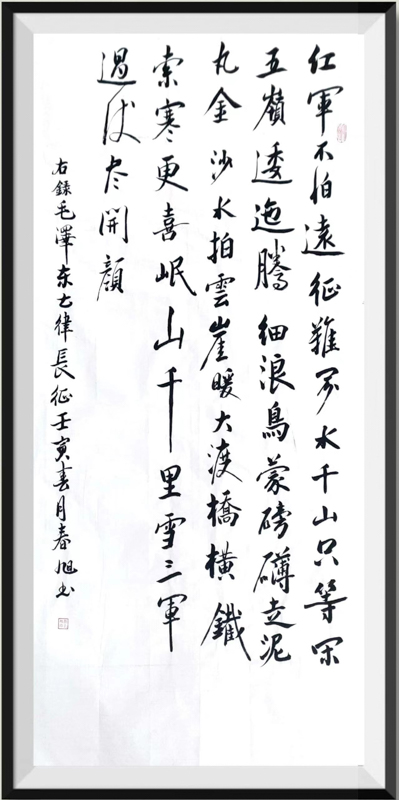 红軍不怕遠征難万水千山只等闲
五嶺逶迤騰细浪烏蒙磅礴走泥
丸金沙水拍雲崖暖大渡橋横鐵
索寒更喜岷山千里雪三軍
過後尽開顔
右錄毛澤东七律長征壬寅春月春旭书